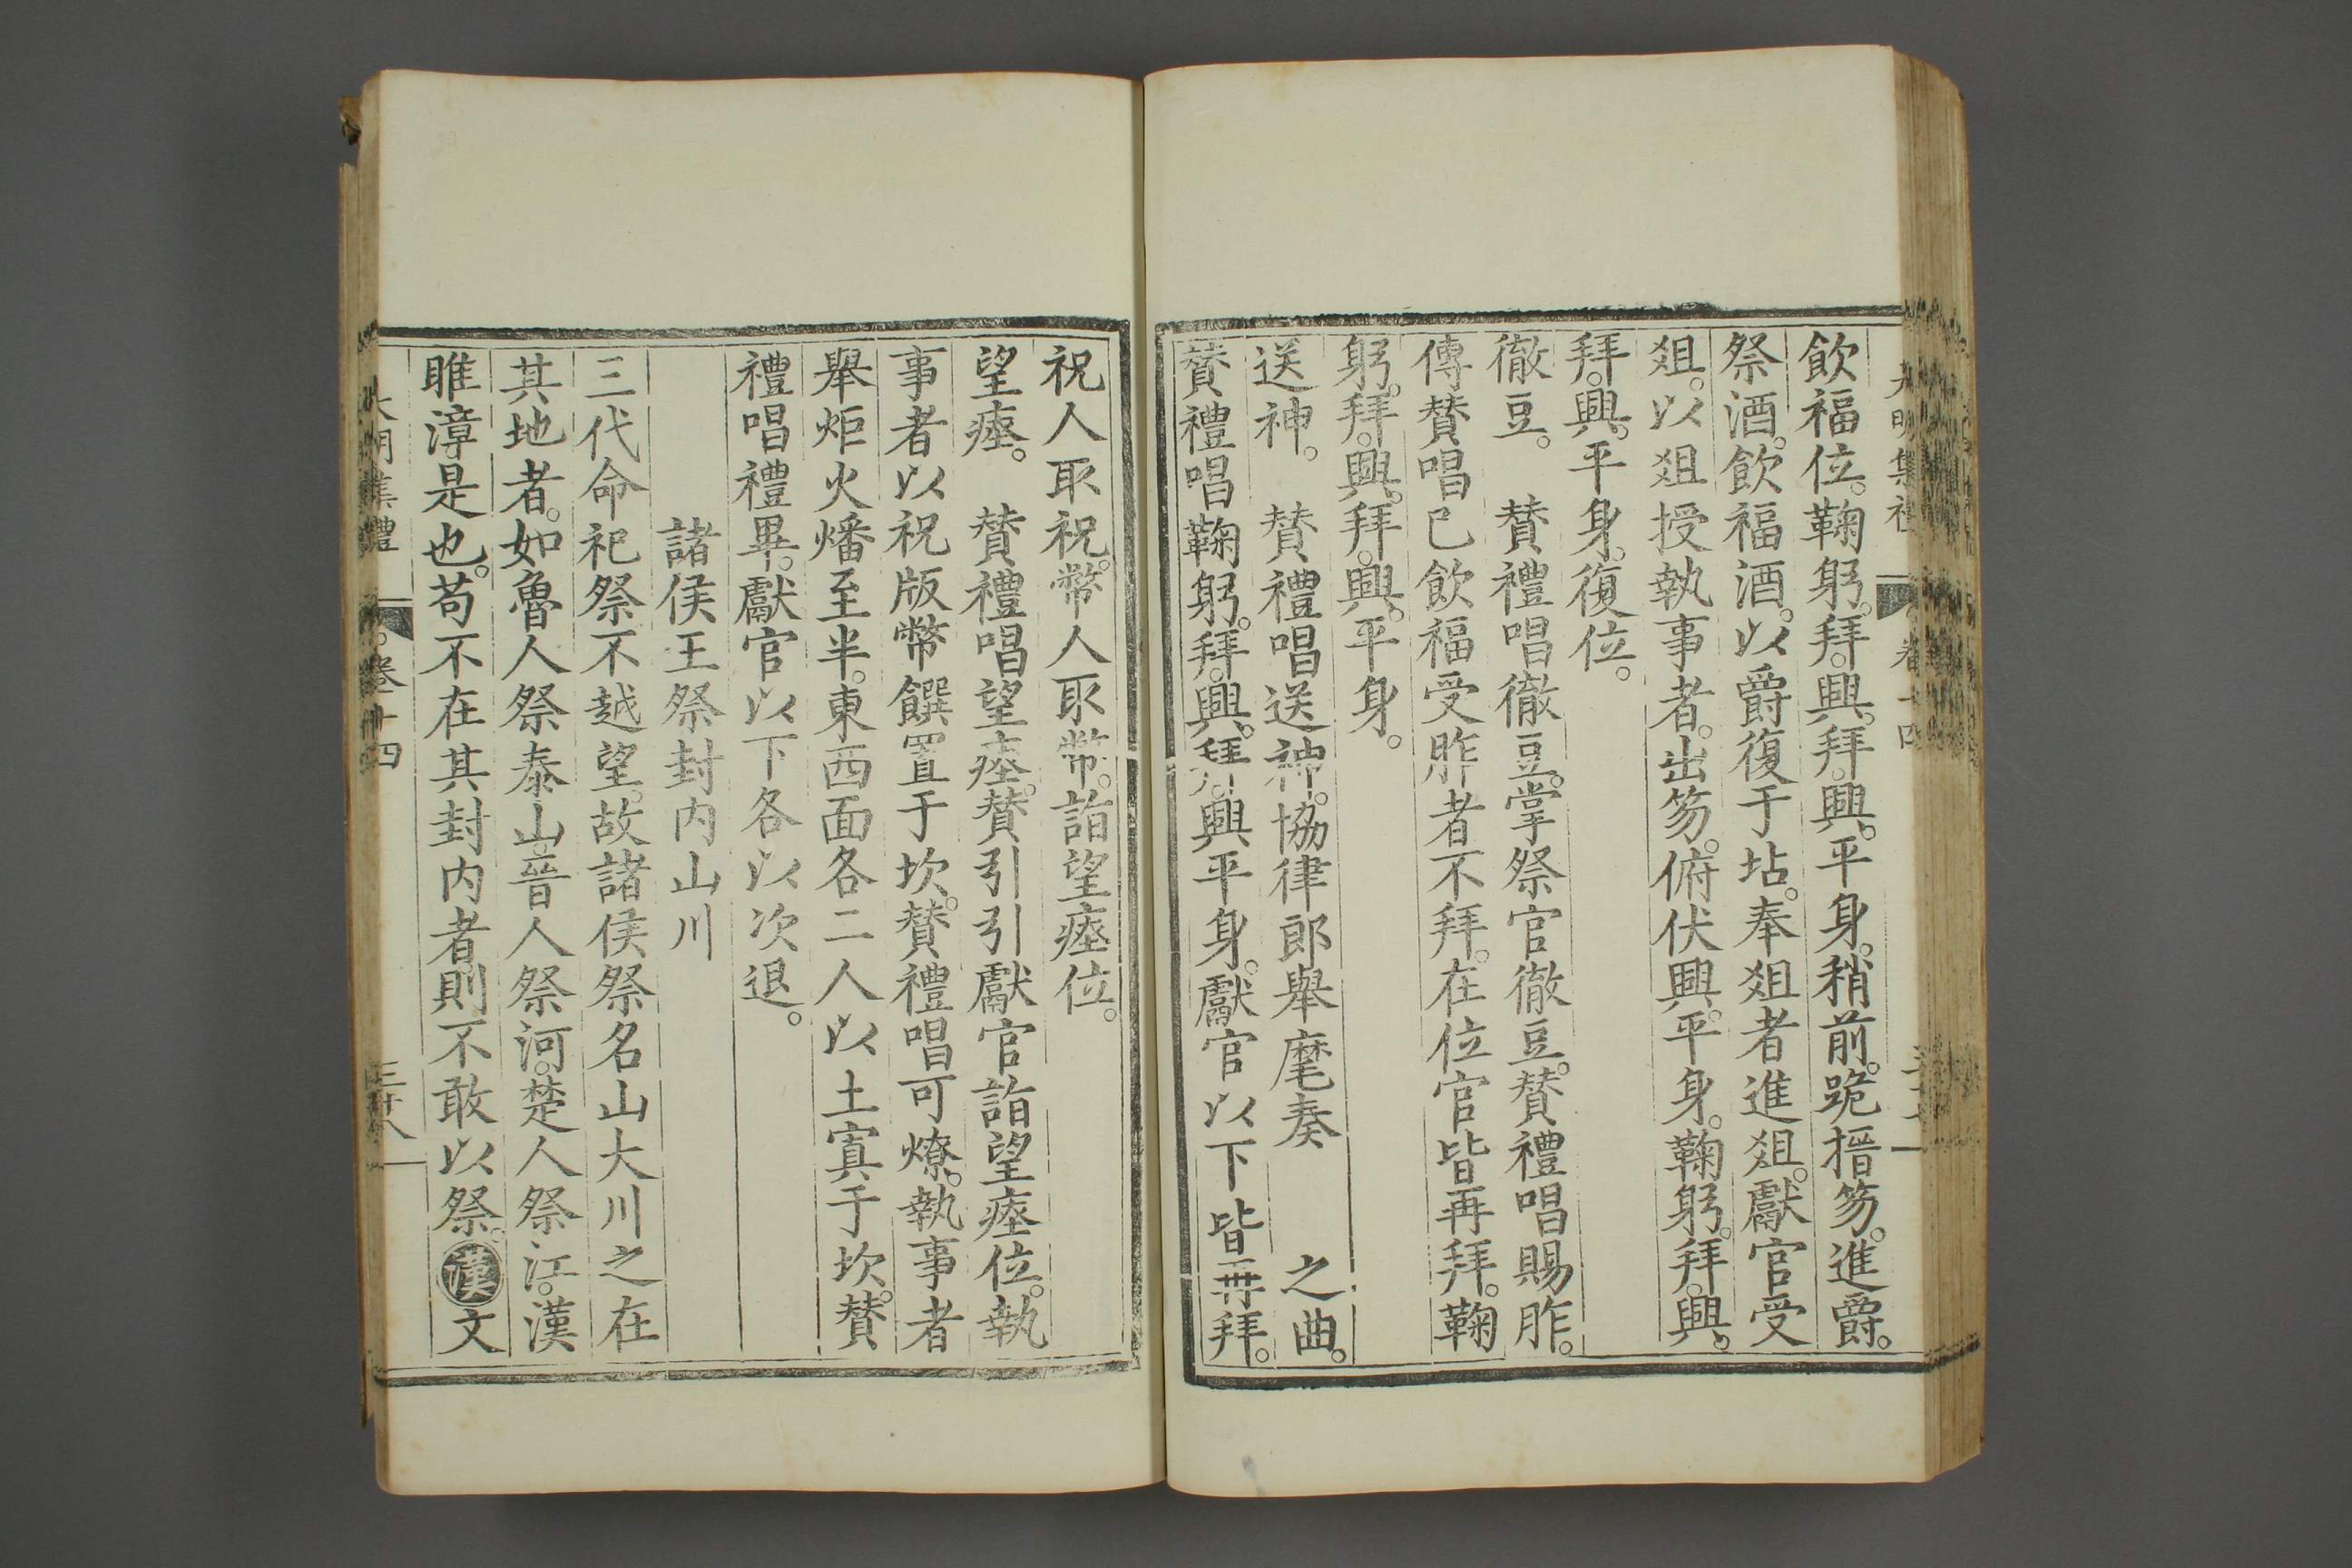 飲福位。鞠躬。拜。興。拜。興。平身。稍前。跪。搢笏。進爵。
祭酒。飲福酒。以爵復于坫。奉爼者進爼。獻官受
爼。以爼授執事者。出笏。俯伏興。平身。鞠躬。拜。興。
拜。興。平身。復位。
徹豆。　贊禮唱徹豆。掌祭官徹豆。贊禮唱賜胙。
傳贊唱已飲福受胙者不拜。在位官皆再拜。鞠
躬。拜。興。拜。興。平身。
送神。　贊禮唱送神。協律郎舉麾奏　　之曲。
贊禮唱鞠躬。拜。興。拜。興平身。獻官以下皆再拜。
祝人取祝。幣人取幣。詣望瘞位。
望瘞。　贊禮唱望瘞。贊引引獻官詣望瘞位。執
事者以祝版幣饌置于坎。贊禮唱可燎。執事者
舉炬火燔至半。東西面各二人以土窴于坎。贊
禮唱禮畢。獻官以下各以次退。
諸侯王祭封内山川
三代命祀祭不越望。故諸侯祭名山大川之在
其地者。如魯人祭泰山。晉人祭河。楚人祭江。漢
睢漳。是也。苟不在其封内者則不敢以祭。漢文
大明集禮　卷十四　三十八